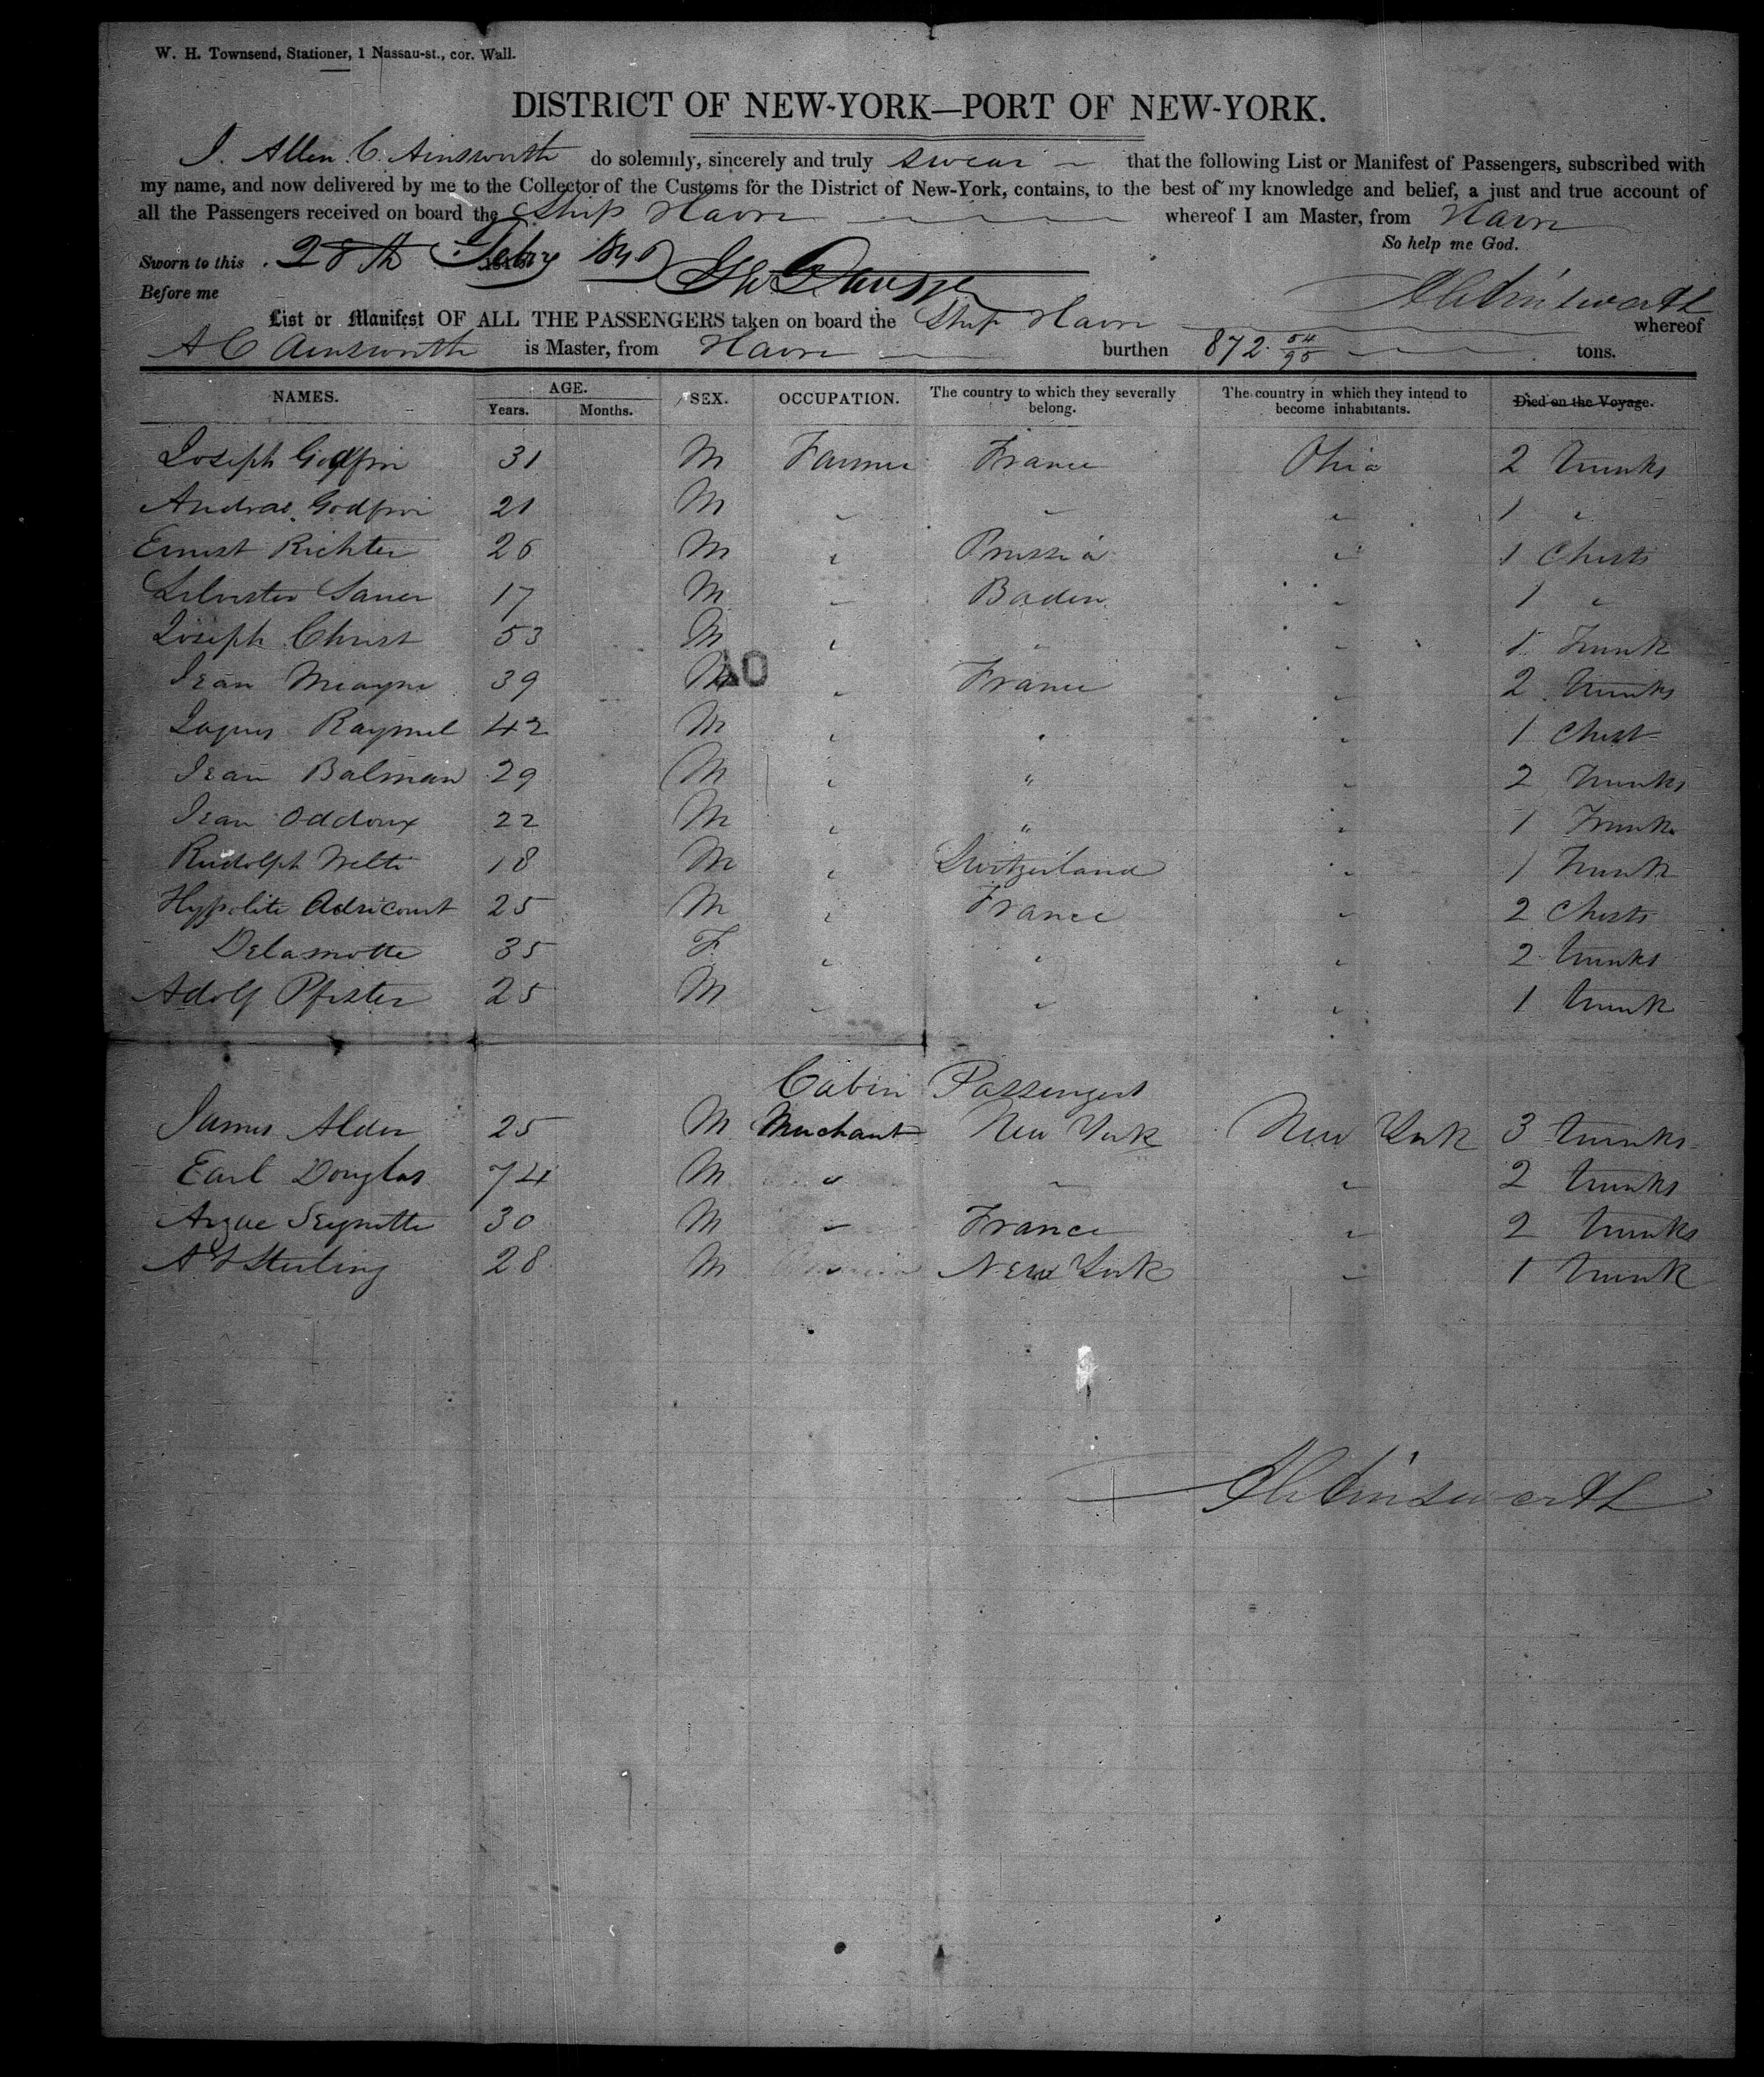 W. H. Townsend, Stationer, 1 Nassau-st., cor. Wall.
DISTRICT OF NEW-YORK—PORT OF NEW-YORK.
I. Allen C. Ainsworth do solemnly, sincerely and truly swear that the following List or Manifest of Passengers, subscribed with
my name, and now delivered by me to the Collector of the Customs for the District of New-York, contains, to the best of my knowledge and belief, a just and true account of
all the Passengers received on board the Ship Havre whereof I am Master, from Havre
So help me God.
Sworn to this 28th Feby
Before me
A C Ainsworth
List or Manifest OF ALL THE PASSENGERS taken on board the Ship Havre whereof
A C Ainsworth is Master, from Havre burthen 872 54/95 tons.
NAMES. AGE. SEX. OCCUPATION. The country to which they severally belong. The country in which they intend to become inhabitants. Died on the Voyage.
Years. Months.
Joseph 31 M Farmer France Ohio 2 trunks
Andrae Godfroi 21 M " " " 1 "
Ernest Richter 26 M " Prussia " 1 Chests
Silvester Sauer 17 M " Baden " 1 "
Joseph Christ 53 M " " " 1 Trunk
40
Jean 39 M " France " 2 trunks
Jaques Raymel 42 M " " " 1 Chest
Jean Balman 29 M " " " 2 trunks
Jean Oddoux 22 M " " " 1 Trunk
Rudolph Welti 18 M " Switzerland " 1 Trunk
Hyppolite Adricourt 25 M " France " 2 Chests
Delamotte 35 F " " " 2 trunks
Adolf Pfister 25 M " " " 1 trunk
Cabin Passengers
James Alder 25 M Merchant New York New York 3 trunks
Earl Douglas 74 M " " " 2 trunks
30 M " France " 2 trunks
Sterling 28 M " New York " 1 trunk
A C Ainsworth